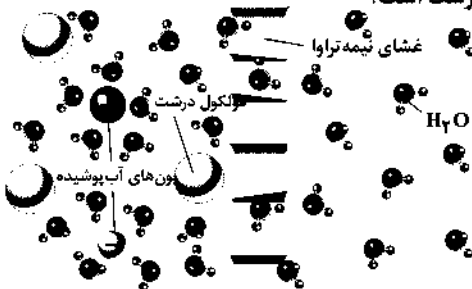 غشای نیمه‌تراوا
مولکول درشت
H۲O
یون‌های آب‌پوشیده